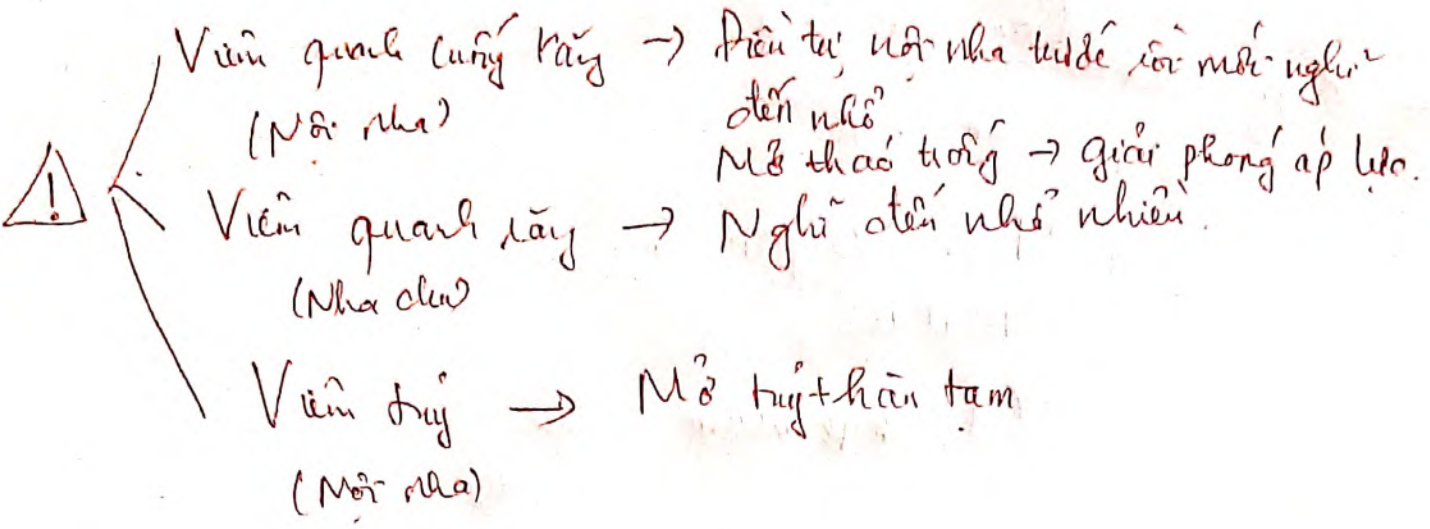 Viêm quanh cuống răng → Điều trị nội nha trước rồi mới nghĩ
(Nội nha) đến nhổ
Mở tháo trống → giải phóng áp lực.
! Viêm quanh răng → Nghĩ đến nhổ nhiều.
(Nha chu)
Viêm tuỷ → Mở tuỷ + hàn tạm
(Nội nha)